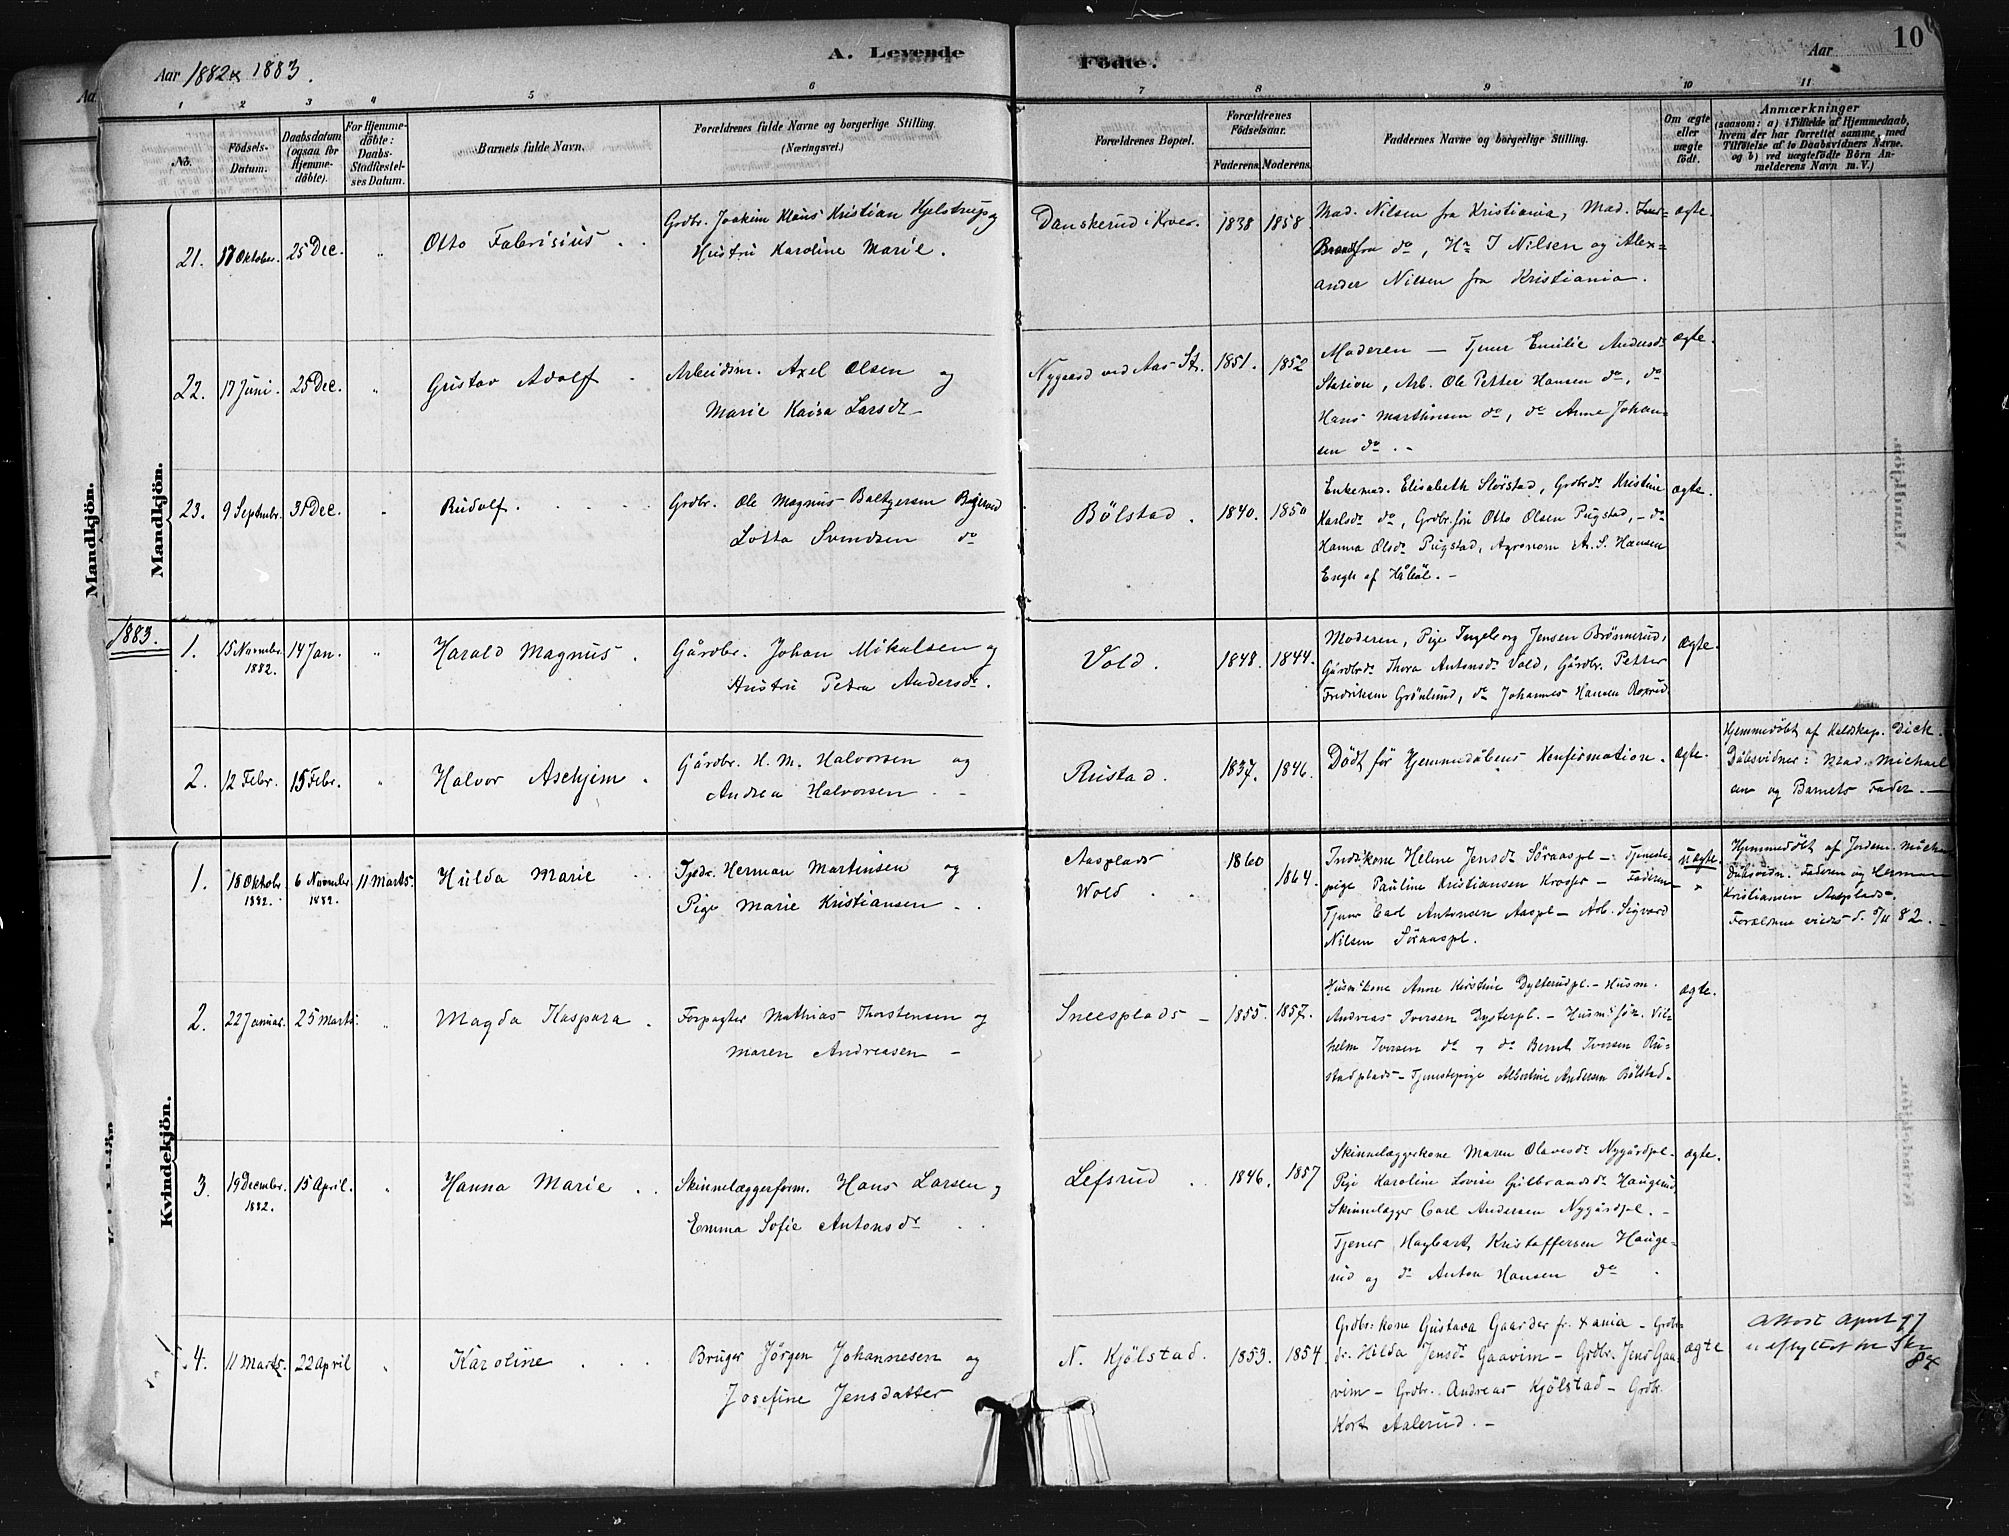 Aar 1882 & 1883.
A. Levende
Födte.
Aar
10
1 2 3 4 5 6 7 8 9 10 11
No.
Födsels-Datum.
Daabsdatum (ogsaa for Hjemmedöbte).
For Hjemmedöbte: Daabs-Stadfæstelses Datum.
Barnets fulde Navn.
Forældrenes fulde Navne og borgerlige Stilling.
(Næringsvei.)
Forældrenes Bopæl.
Forældrenes Födselsaar.
Faderens. Moderens.
Faddernes Navne og borgerlige Stilling.
Om ægte eller uægte födt.
Anmærkninger
(saasom: a) i Tilfælde af Hjemmedaab,
hvem der har forrettet samme, med
Tilföielse af to Daabsvidners Navne.
og b) ved uægtefödte Börn An-
melderens Navn m. V.)
Mandkjön.
Mandkjön.
21. 17 Oktober. 25 Dec. " Otto Fabrisius . . Grdbr. Joakim Klaus Kristian Kjelstrup og
Hustru Karoline Marie.
Danskerud i Kroer. 1838 1858.
Mad. Nilsen fra Kristiania, Mad.
Brandt fra do, Hr J Nilsen og Alex-
ander Nilsen fra Kristiania.
ægte.
22. 17 Juni. 25 Dec. " Gustav Adolf . Arbeidsm. Axel Olsen og
Marie Kaisa Larsdr
Nygaard ved Aas St. 1851. 1852
Moderen — Tjener Emilie Andersdr
Station, Arb. Ole Petter Hansen do, do
Hans Marthinsen do, do Anne Johan-
sen do . –
ægte.
23. 9 Septembr. 31 Dec. " Rudolf. . . . . Grdbr. Ole Magnus Baltzersen
Lotta Svendsen do
Bölstad . 1840. 1850
Enkemad. Elisabeth Störstad, Grdbrdr Kristine
Karlsdr do, Grdbr. sön Otto Olsen Pugstad, – do
Hanna Olsdr Pugstad, Agronom A. S. Hansen
Engh af Håböl. –
ægte.
1883.
1. 15 November 1882. 14 Jan. " Harald Magnus . Gårdbr. Johan Mikalsen og
Hustru Petra Andersdr.
Vold. 1848. 1844.
Moderen, Pige Ingeborg Jensen Brönnerud,
Gårdbrdr Thora Antonsdr Vold, Gårdbr. Petter
Fredriksen Grönlund, do Johannes Hansen Roxrud
ægte.
2. 12 Febr. 15 Febr. " Halvor Aschjim . Gårdbr. H. M. Halvorsen og
Andrea Halvorsen . –
Rustad. 1837. 1846.
Dödt för Hjemmedåbens Konfirmation . ægte.
Hjemmedöbt af Dick.
Dåbsvidner: Mad. Michael
sen og Barnets Fader. —
Kvindekjön.
1. 18 Oktobr. 1882. 6 November 1882. 11 Marts. Hulda Marie . . Herman Martinsen og
Pige Marie Kristiansen . .
Aasplads
Wold . . 1860 1864.
Inds. kone Helene Jensdr Söraaspl – Tjeneste-
pige Pauline Kristiansen Krosser – Faderen –
Tjener Carl Antonsen Aaspl – Arb. Sigvard
Nilsen Söraaspl.
uægte.
Hjemmedöbt af Jordem. Mich
Dåbsvidn. Faderen og Herman
Kristiansen Aasplads.
Forældrene viedes d. 5/11 82. –
2. 22 Januar. 25 Marts. " Magda Kaspara . Forpagter Mathias Thorstensen og
Maren Andreasen –
Sneesplads – 1855. 1857.
Husm. kone Anne Kirstine Dysterudpl. – Husm.
Andreas Iversen Dysterpl. – Husm. sön Vil-
helm Iversen do, do Bernt Iversen Ru-
stadplads – Tjenestepige Albertine Andersen Bölstad –
ægte.
3. 19 Decembr. 1882. 15 April. " Hanna Marie . . Skinnelæggerform. Hans Larsen og
Emma Sofie Antonsdr . .
Lefsrud . . 1846. 1857
Skinnelæggerkone Maren Olavesdr Nygårdpl –
Pige Karoline Lovise Gulbrandsdr Haugerud
Skinnelægger Carl Andersen Nygårdpl. –
Tjener Hagbart Kristoffersen Hauge-
rud og do Anton Hansen do .
ægte.
4. 11 Marts. 22 April " Karoline . . . Bruger Jörgen Johannesen og
Josefine Jensdatter
N. Kjölstad. 1853. 1854
Grdbr: kone Gustava Gaarder fr. Xania – Grdbr-
dr. Hilda Jensdr Gaavim – Grdbr. Jens Gaa-
vim – Grdbr. Andreas Kjölstad – Grdbr.
Kort Aalerud. –
ægte
Attest April 97